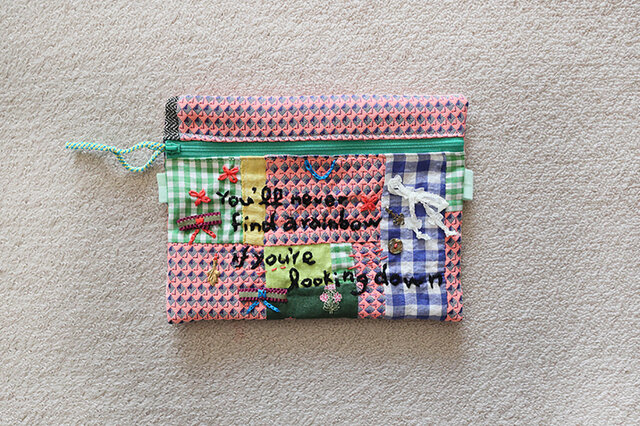 You'll never
find a rainbow
if you're
looking down